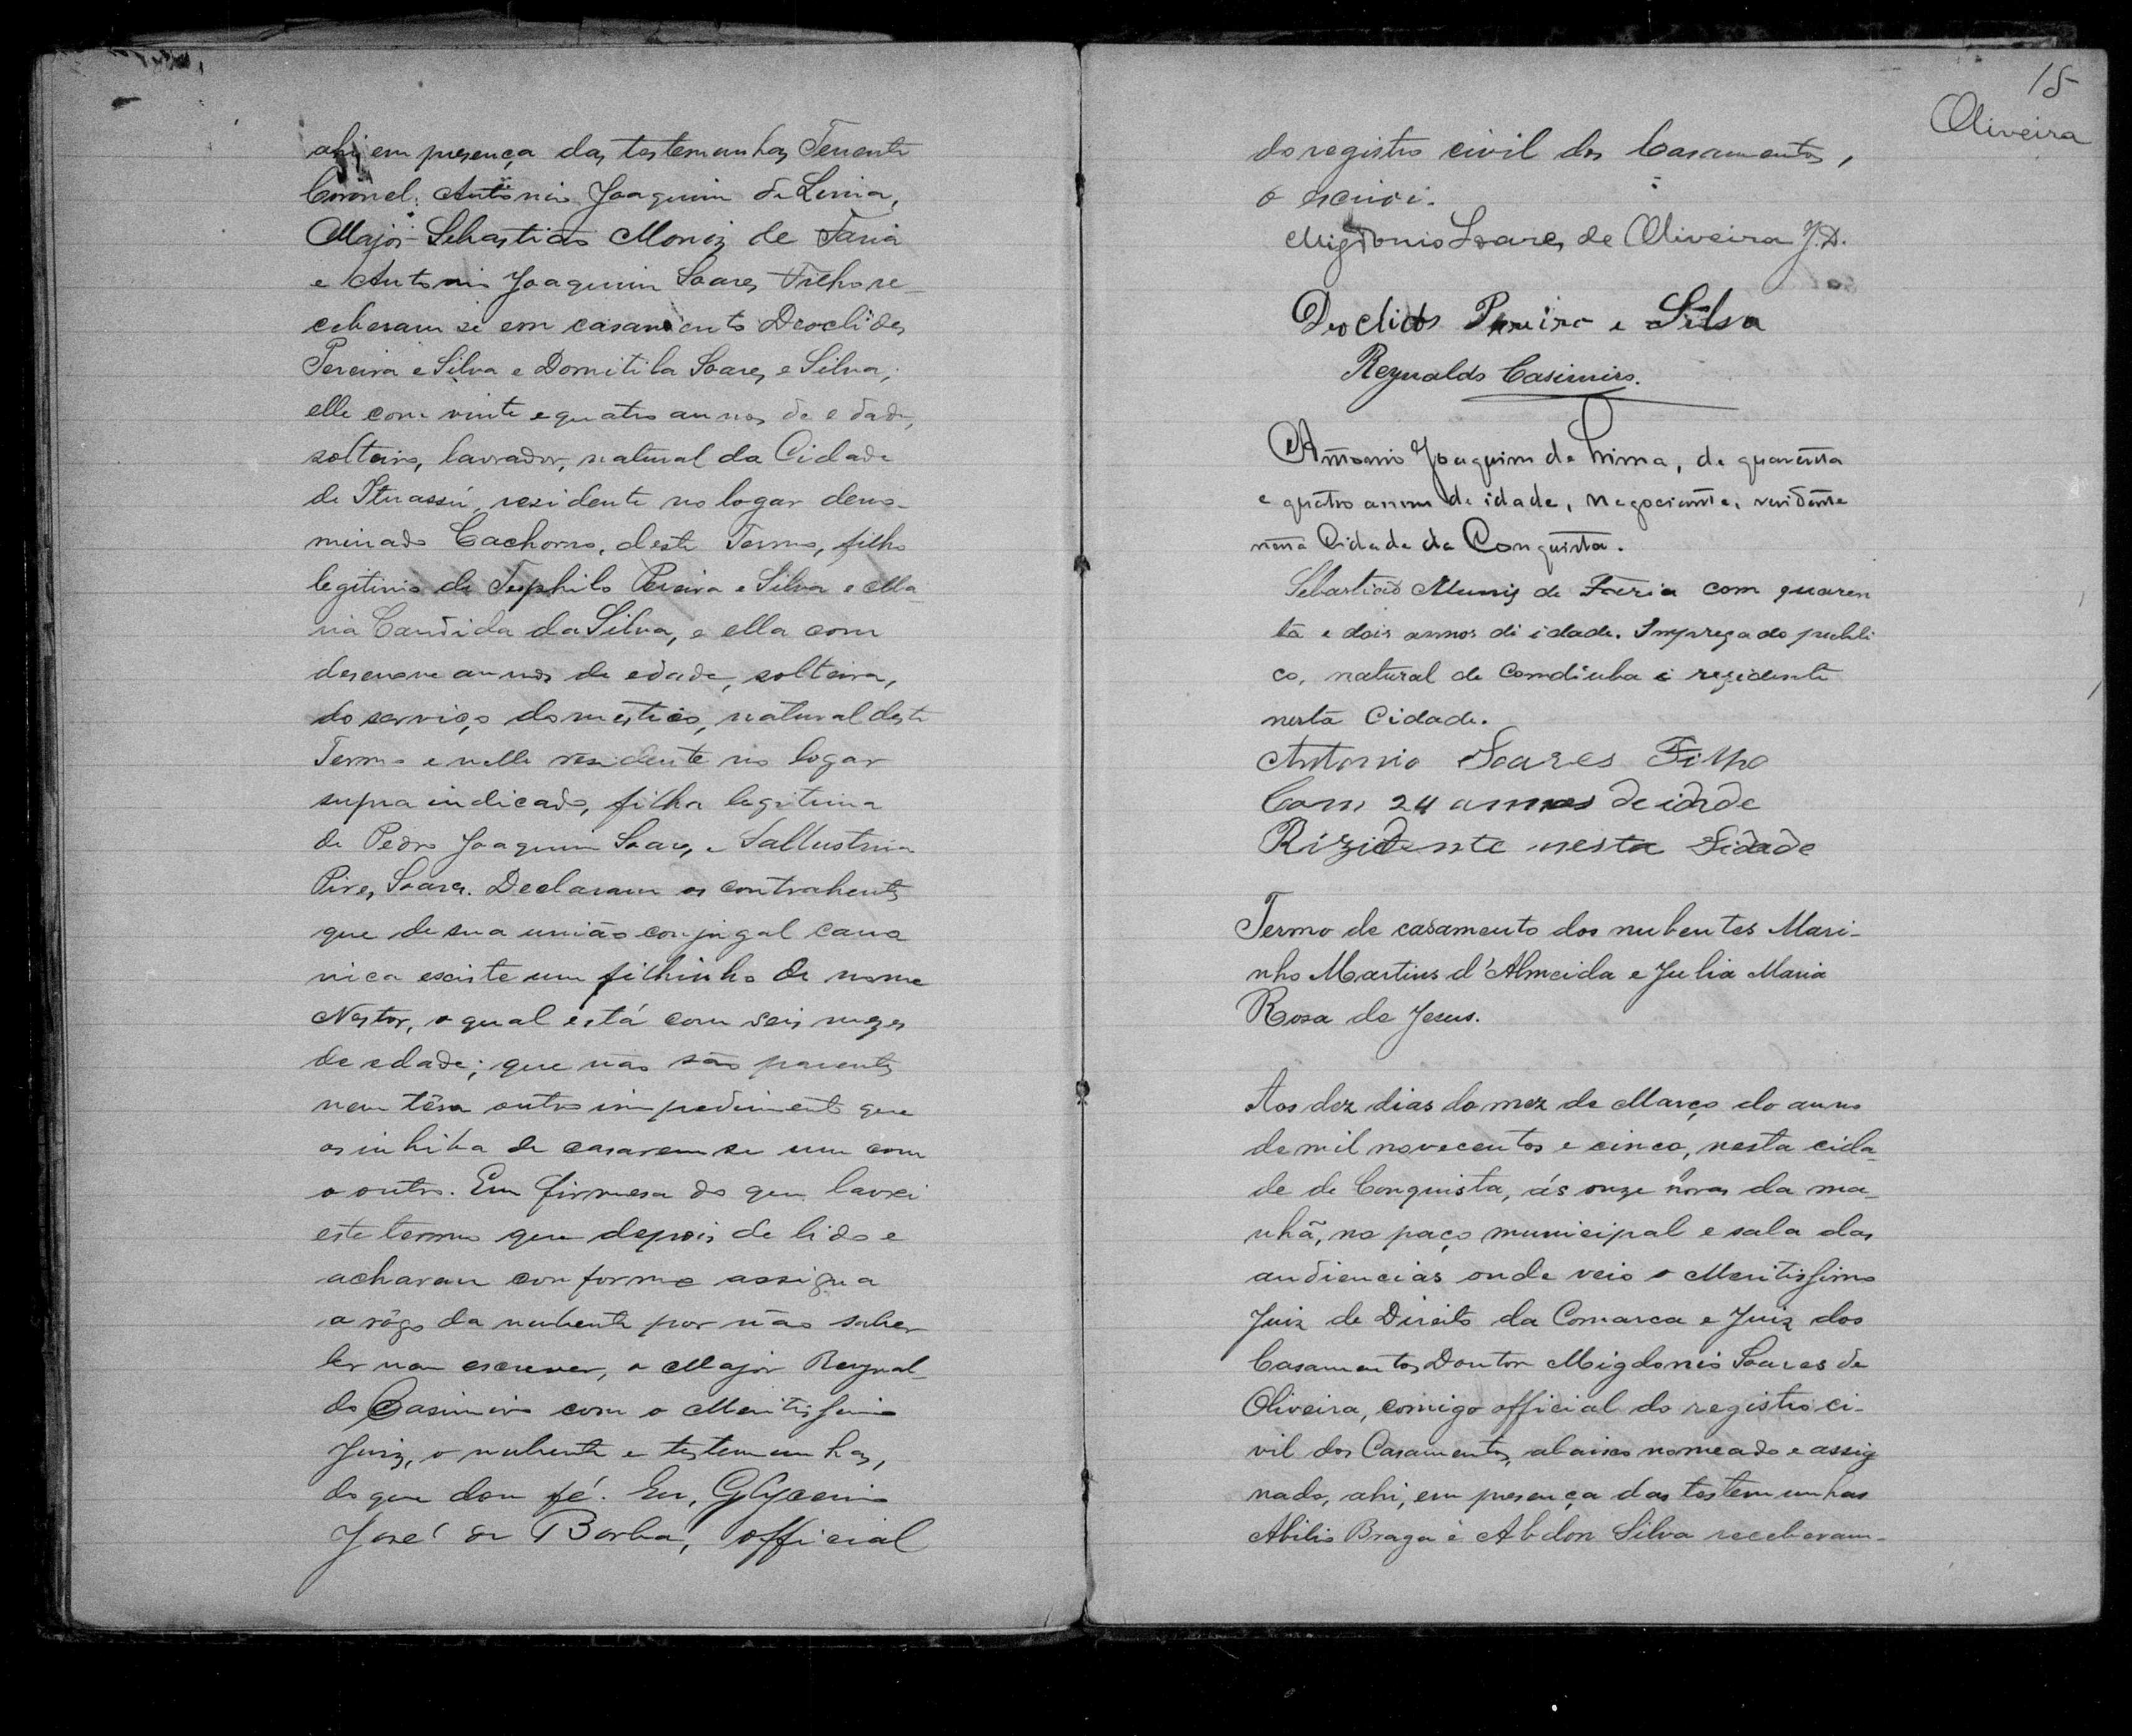 ahi em presença das testemunhas Tenente
Coronel Antonio Joaquim de Lima,
Major Sebastião Moniz de Faria
e Antonio Joaquim Soares Filho re-
ceberam se em casamento Deoclides
Pereira e Silva e Domitila Soares e Silva,
elle com vinte e quatro annos de edade,
solteiro, lavrador, natural da Cidade
de Ituassú, residente no logar deno-
minado Cachorro, deste Termo, filho
legitimo de Teophilo Pereira e Silva e Ma-
ria Candida da Silva, e ella com
desenove annos de edade, solteira,
do serviço domestico, natural deste
Termo e nelle residente no logar
supra indicado, filha legitima
de Pedro Joaquim Soares e Sallustria
Pires Soares. Declaram os contrahentes
que de sua união conjugal cano
nica existe um filhinho de nome
Nestor, o qual está com seis mezes
de edade; que não são parentes
nem têm outro impedimento que
os inhiba de casarem se um com
o outro. Em firmesa do que lavrei
este termo que depois de lido e
acharam conforme assigna
a rôgo da nubente por não saber
ler nem escrever, o Major Reynal-
do Casimiro com o Meritissimo
Juiz, o nubente e testemunhas,
do que dou fé. Eu, Glycerio
José de Borba, official
15
Oliveira
do registro civil dos Casamentos,
o escrivi.
Migdonio Soares de Oliveira J.D.
Deoclides Pereira e Silva
Reynaldo Casimiro.
Antonio Joaquim de Lima, de quarenta
e quatro annos de idade, negociante, residente
nesta Cidade da Conquista.
Sebastião Muniz de Faria com quaren
ta e dois annos di idade. Impregado publi
co, natural de Condiuba i rezidente
nesta Cidade.
Antonio Soares Filho
Com 24 annos de idade
Rizidente nesta Sidade
Termo de casamento dos nubentes Mari-
nho Martins d'Almeida e Julia Maria
Rosa de Jesus.
Aos dez dias do mez de Março do anno
de mil novecentos e cinco, nesta cida-
de de Conquista, ás onze horas da ma-
nhã, no paço municipal e sala das
audiencias onde veio o Meritissimo
Juiz de Direito da Comarca e Juiz dos
Casamentos Doutor Migdonio Soares de
Oliveira, comigo official do registro ci-
vil dos Casamentos, abaixo nomeado e assig
nado, ahi, em presença das testemunhas
Abilio Braga e Abdon Silva receberam-